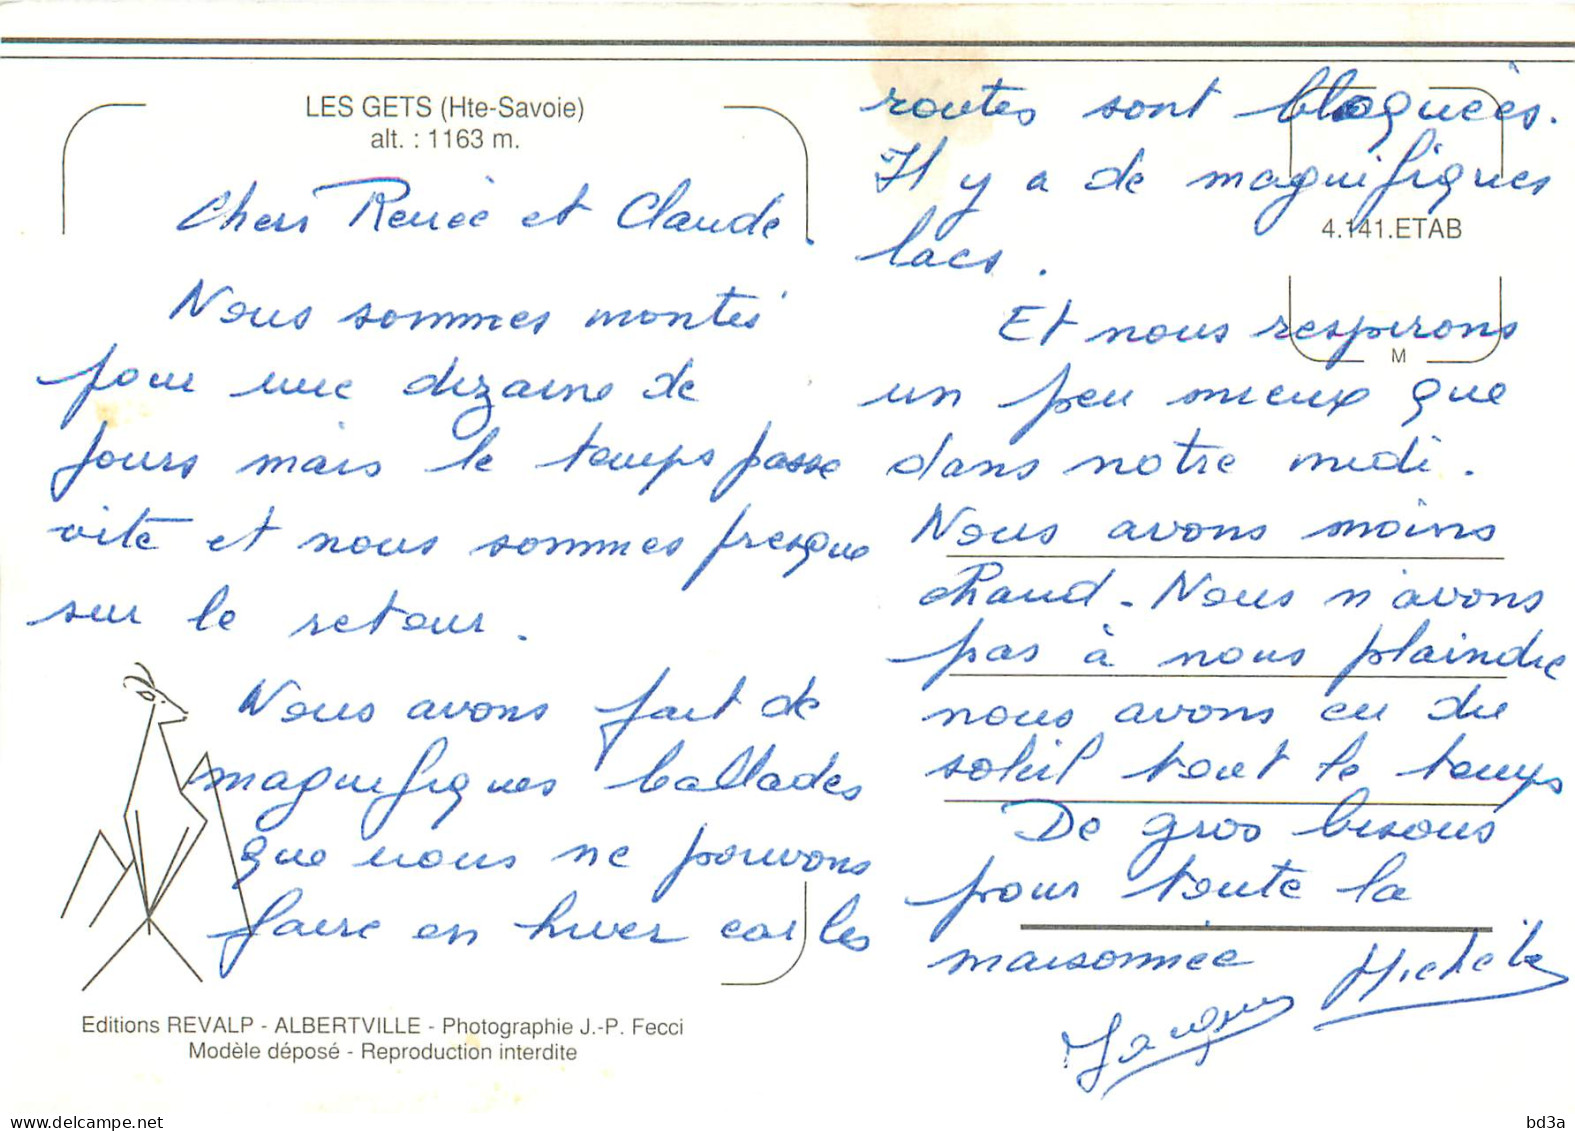 LES GETS (Hte-Savoie)
alt. : 1163 m.
Chers Renée et Claude.
Nous sommes montés
pour une dizaine de
jours mais le temps passe
vite et nous sommes presque
sur le retour.
Nous avons fait de
magnifiques ballades
que nous ne pouvons
faire en hiver car les
routes sont bloquées.
Il y a de magnifiques
lacs.
Et nous respirons
un peu mieux que
dans notre midi.
Nous avons moins
chaud. Nous n'avons
pas à nous plaindre
nous avons eu du
soleil tout le temps
De gros bisous
pour toute la
maisonnée
Jacques Michèle
4.141.ETAB
M
Editions REVALP - ALBERTVILLE - Photographie J.-P. Fecci
Modèle déposé - Reproduction interdite
www.delcampe.net
bd3a